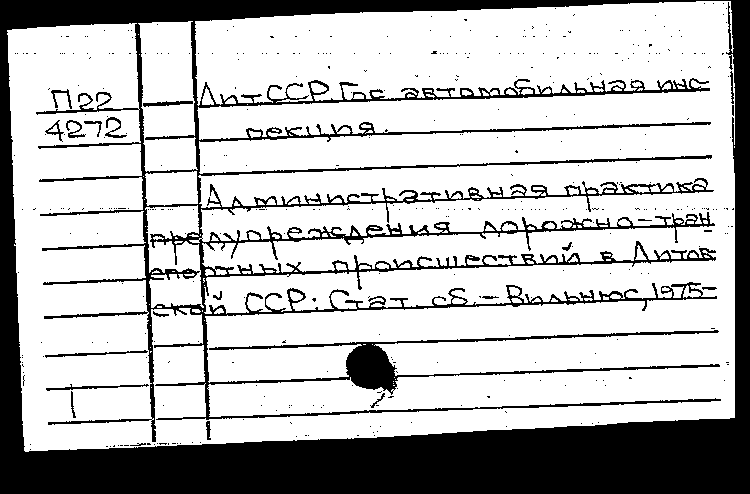 П22
4272
ЛитССР. Гос автомобильная инс-
пекция.
Административная практика
предупреждения дорожно-тран
спортных происшествий в Литов
ской ССР: Стат. сб. – Вильнюс, 1975-